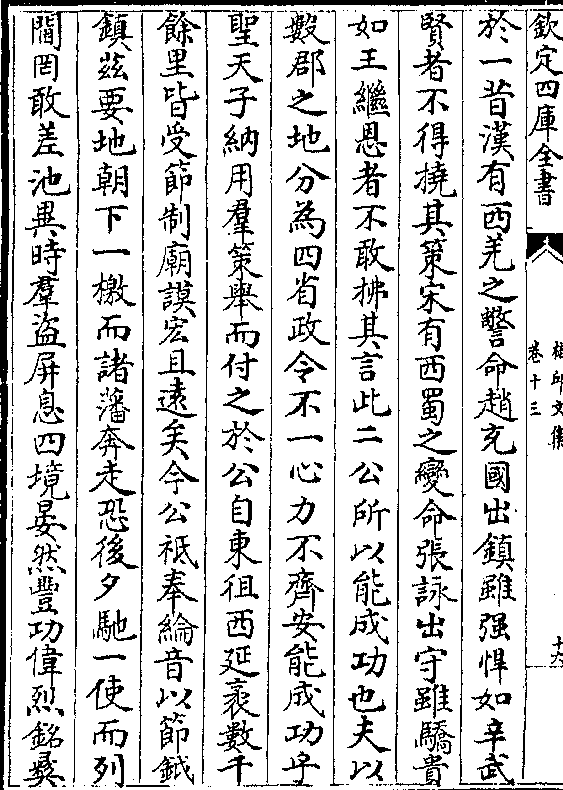 欽定四庫全書
栢邱文集
卷十三
十六
於一昔漢有西羌之警命趙充國出鎮雖强悍如辛武
賢者不得撓其策宋有西蜀之變命張詠出守雖驕貴
如王繼恩者不敢拂其言此二公所以能成功也夫以
數郡之地分為四省政令不一心力不齊安能成功乎
聖天子納用羣策舉而付之於公自東徂西延袤數千
餘里皆受節制廟謨宏且遠矣今公祗奉綸音以節鉞
鎮兹要地朝下一檄而諸藩奔走恐後夕馳一使而列
閫罔敢差池異時羣盜屏息四境晏然豐功偉烈銘彛